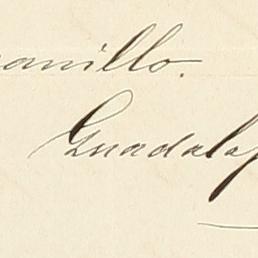 anillo.
Guadalaj